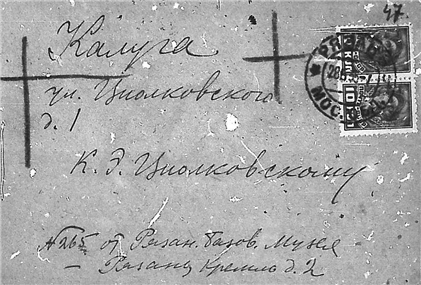 47.
Калуга
ул. Циолковского
д. 1
К. д. Циолковскому
№265 от Рязан. базов. Музея
– Рязань Кремль д. 2
РЯЗАНЬ
МОС
10